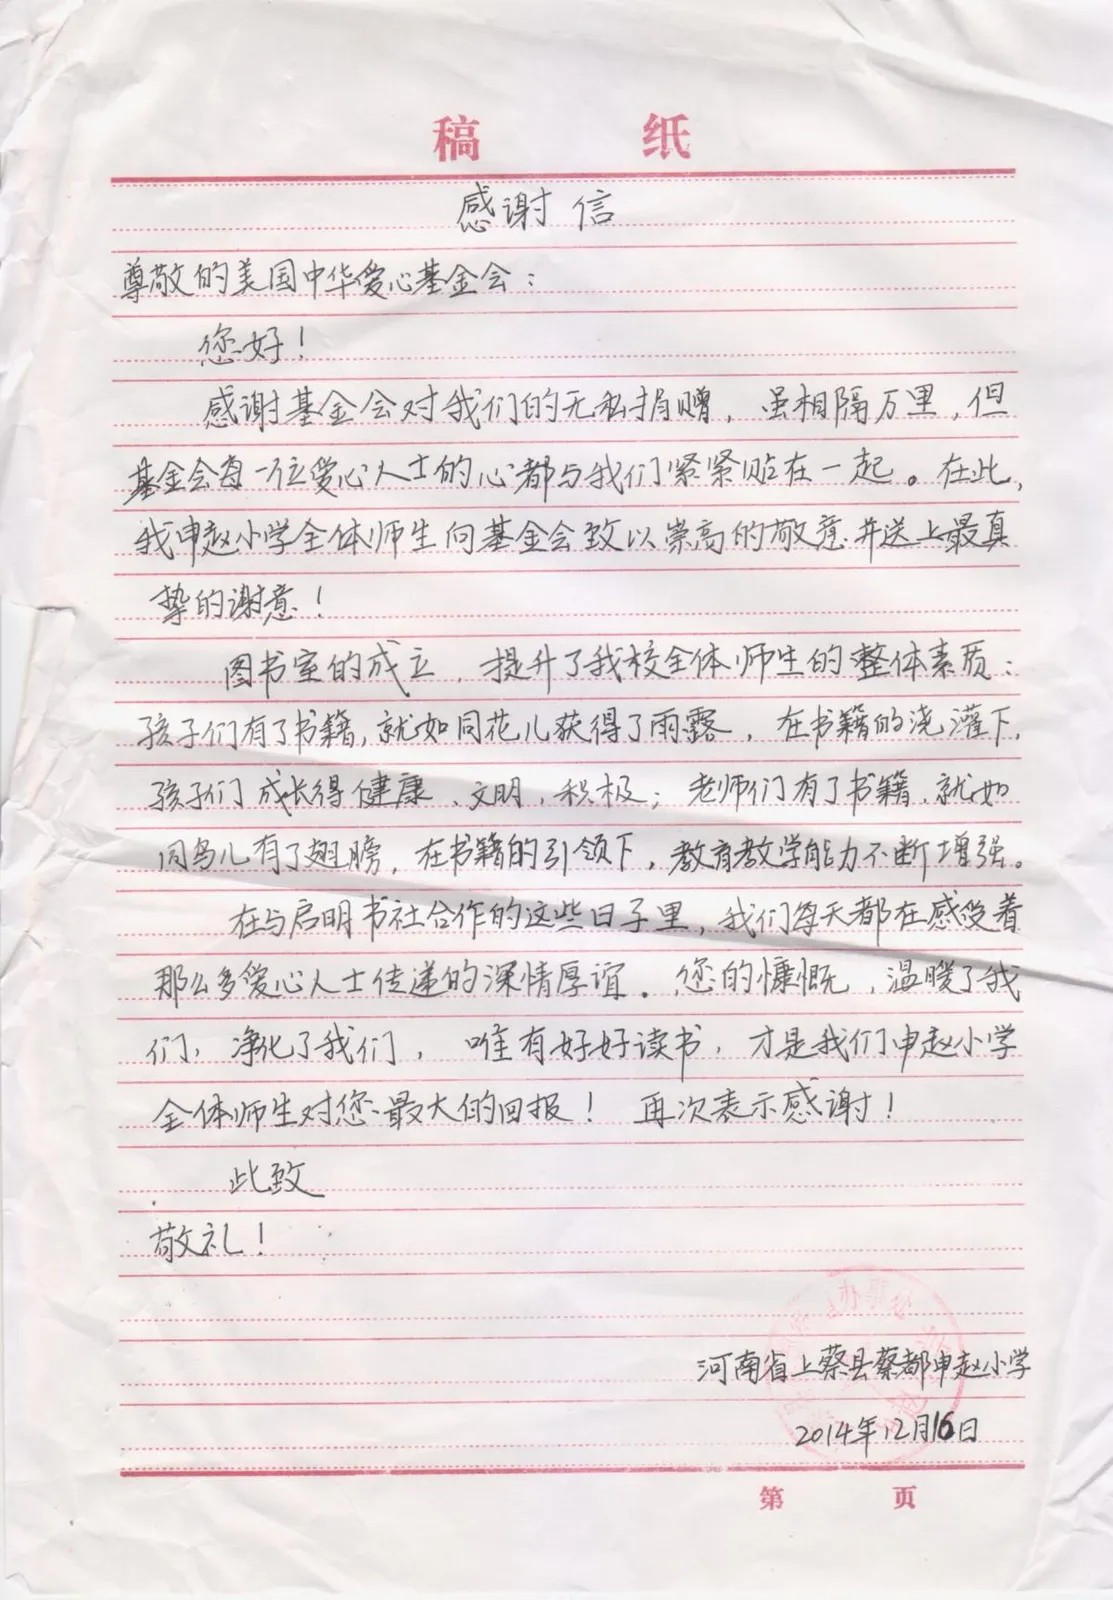 稿 纸
感谢信
尊敬的美国中华爱心基金会：
您好！
感谢基金会对我们的无私捐赠，虽相隔万里，但
基金会每一位爱心人士的心都与我们紧紧贴在一起。在此，
我申赵小学全体师生向基金会致以崇高的敬意并送上最真
挚的谢意！
图书室的成立，提升了我校全体师生的整体素质：
孩子们有了书籍，就如同花儿获得了雨露，在书籍的浇灌下，
孩子们成长得健康、文明、积极；老师们有了书籍，就如
同鸟儿有了翅膀，在书籍的引领下，教育教学能力不断增强。
在与启明书社合作的这些日子里，我们每天都在感受着
那么多爱心人士传递的深情厚谊。您的慷慨，温暖了我
们，净化了我们，唯有好好读书，才是我们申赵小学
全体师生对您最大的回报！再次表示感谢！
此致
敬礼！
河南省上蔡县蔡都申赵小学
2014年12月16日
第 页